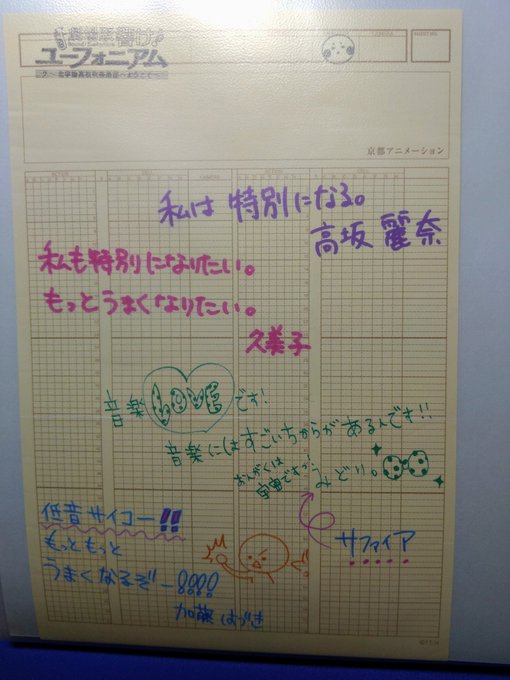 響け!
ユーフォニアム
北宇治高校吹奏楽部へようこそ
京都アニメーション
私は 特別になる。
高坂 麗奈
私も特別になりたい。
もっとうまくなりたい。
久美子
音楽LOVEです!
音楽にはすごいちからがあるんです!!
おんがくは
宇宙ですっ!
みどり。
サファイア
低音サイコー!!
もっともっと
うまくなるぞー!!!!
加藤 はづき